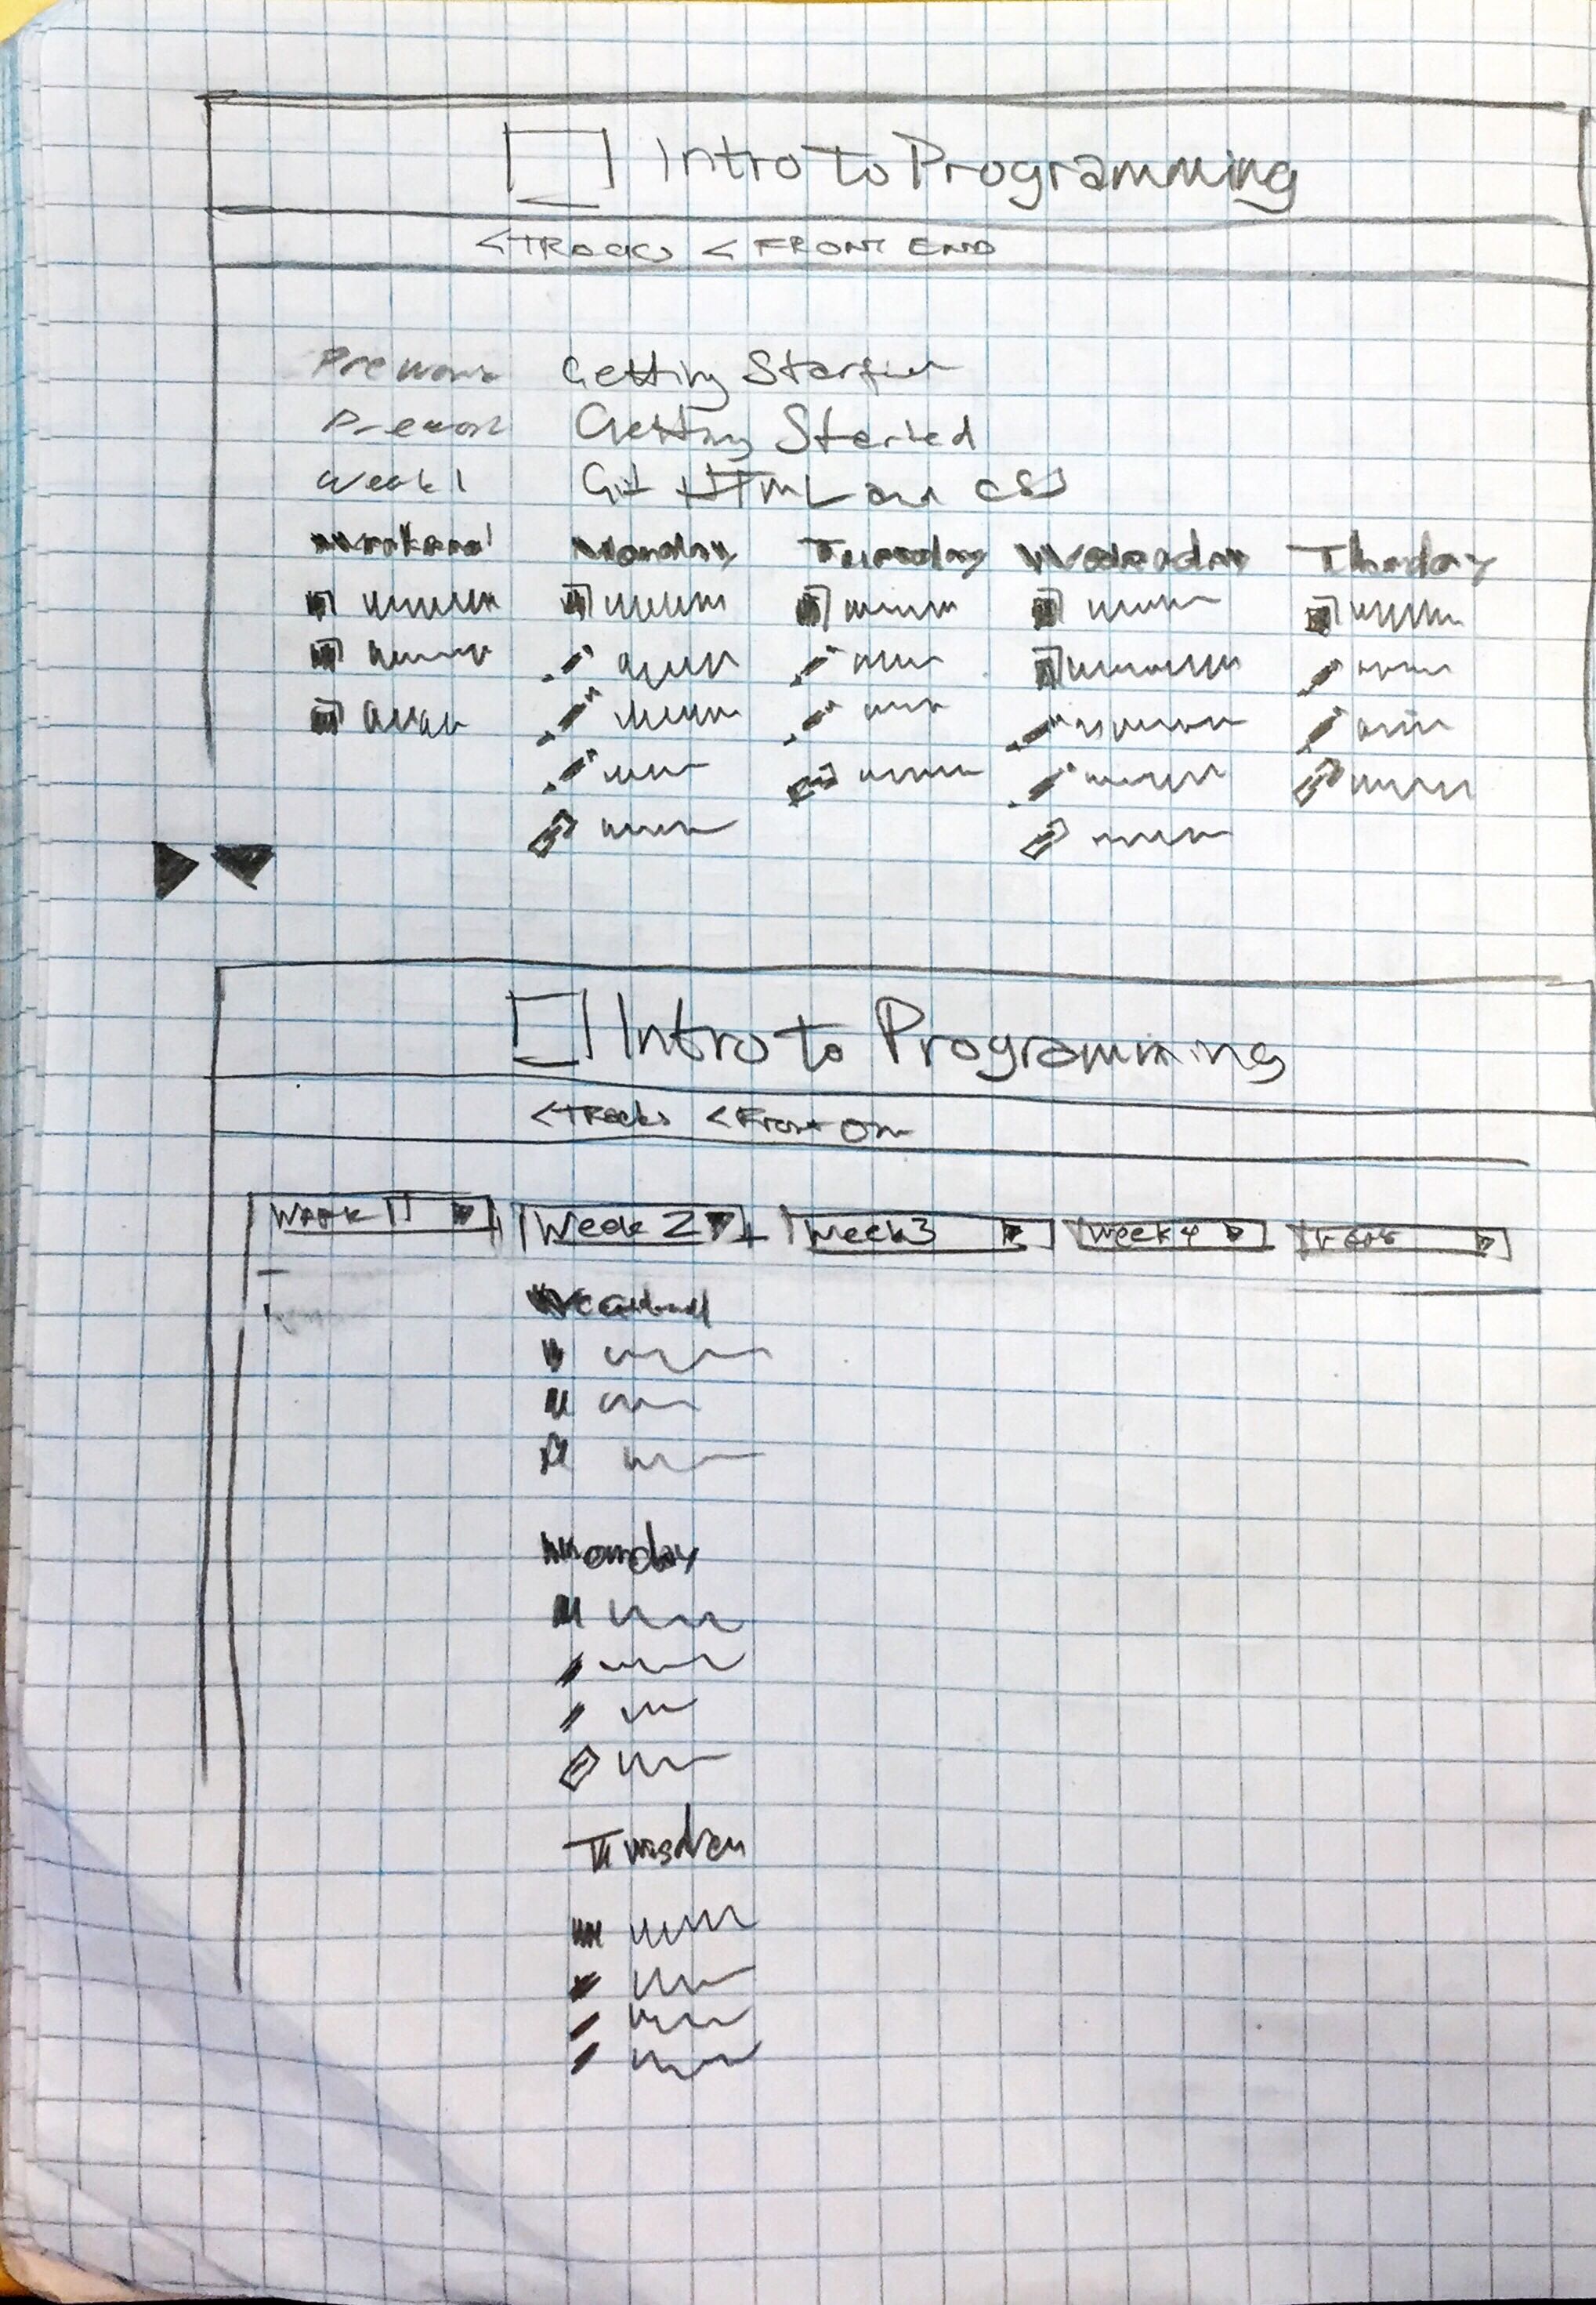 Intro to Programming
<TRACKS <FRONT END
Prework Getting Started
Prework Getting Started
Week 1 Git HTML and CSS
Weekend Monday Tuesday Wednesday Thursday
Intro to Programming
<Tracks <Front
Week 1 Week 2 Week 3 Week 4
Weekend
Monday
Tuesday